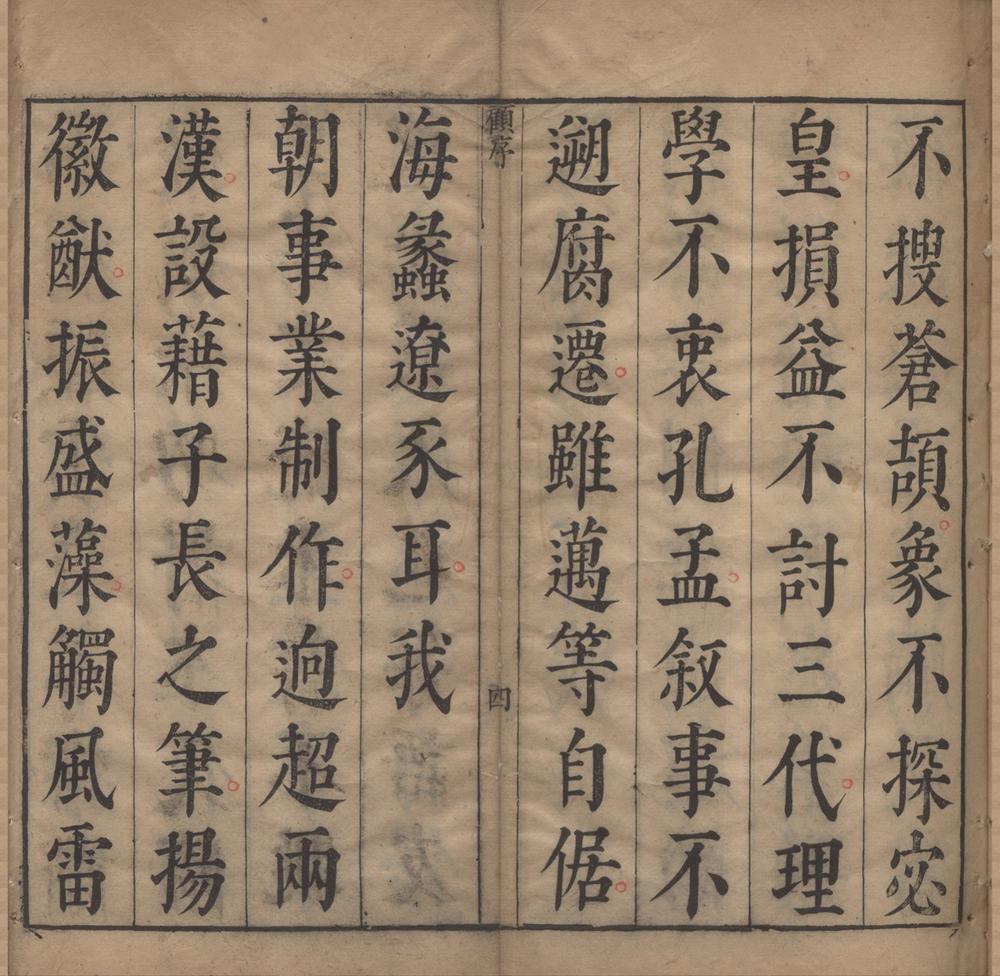 不搜蒼頡象不探宓
皇損益不討三代理
學不衷孔孟敘事不
遡腐遷雖邁等自倨
顧序
四
海蠡遼豕耳我
朝事業制作逈超兩
漢設藉子長之筆揚
徽猷振盛藻觸風雷